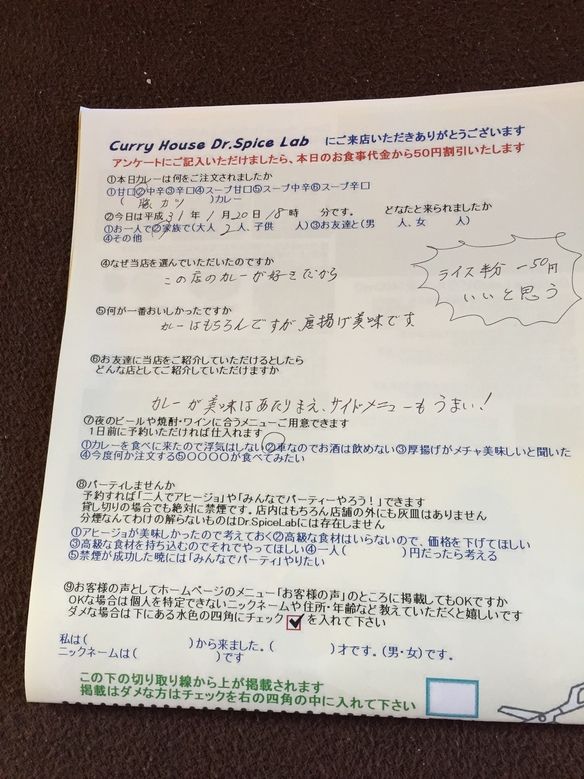 Curry House Dr.Spice Lab にご来店いただきありがとうございます
アンケートにご記入いただけましたら、本日のお食事代金から50円割引いたします
①本日カレーは何をご注文されましたか
①甘口②中辛③辛口④スープ甘口⑤スープ中辛⑥スープ辛口
( カツ )カレー
②今日は平成31年1月20日18時 分です。 どなたと来られましたか
①お一人で②家族で(大人 2人、子供 人)③お友達と(男 人、女 人)
④その他
④なぜ当店を選んでいただいたのですか
この店のカレーが好きだから
ライス半分 -50円
いいと思う
⑤何が一番おいしかったですか
カレーはもちろんですが 唐揚げ美味です
⑥お友達に当店をご紹介していただけるとしたら
どんな店としてご紹介していただけますか
カレーが美味はあたりまえ、サイドメニューもうまい!
⑦夜のビールや焼酎・ワインに合うメニューご用意できます
1日前に予約いただければ仕入れます
①カレーを食べに来たので浮気はしない②車なのでお酒は飲めない③厚揚げがメチャ美味しいと聞いた
④今度何か注文する⑤〇〇〇〇が食べてみたい
⑧パーティしませんか
予約すれば「二人でアヒージョ」や「みんなでパーティーやろう!」できます
貸し切りの場合でも絶対に禁煙です。店内はもちろん店舗の外にも灰皿はありません
分煙なんてわけの解らないものはDr.SpiceLabには存在しません
①アヒージョが美味しかったので考えておく②高級な食材はいらないので、価格を下げてほしい
③高級な食材を持ち込むのでそれでやってほしい④一人( )円だったら考える
⑤禁煙が成功した暁には「みんなでパーティ」やりたい
⑨お客様の声としてホームページのメニュー「お客様の声」のところに掲載してもOKですか
OKな場合は個人を特定できないニックネームや住所・年齢など教えていただくと嬉しいです
ダメな場合は下にある水色の四角にチェック を入れて下さい
私は( )から来ました。( )才です。(男・女)です。
ニックネームは( )です
この下の切り取り線から上が掲載されます
掲載はダメな方はチェックを右の四角の中に入れて下さい